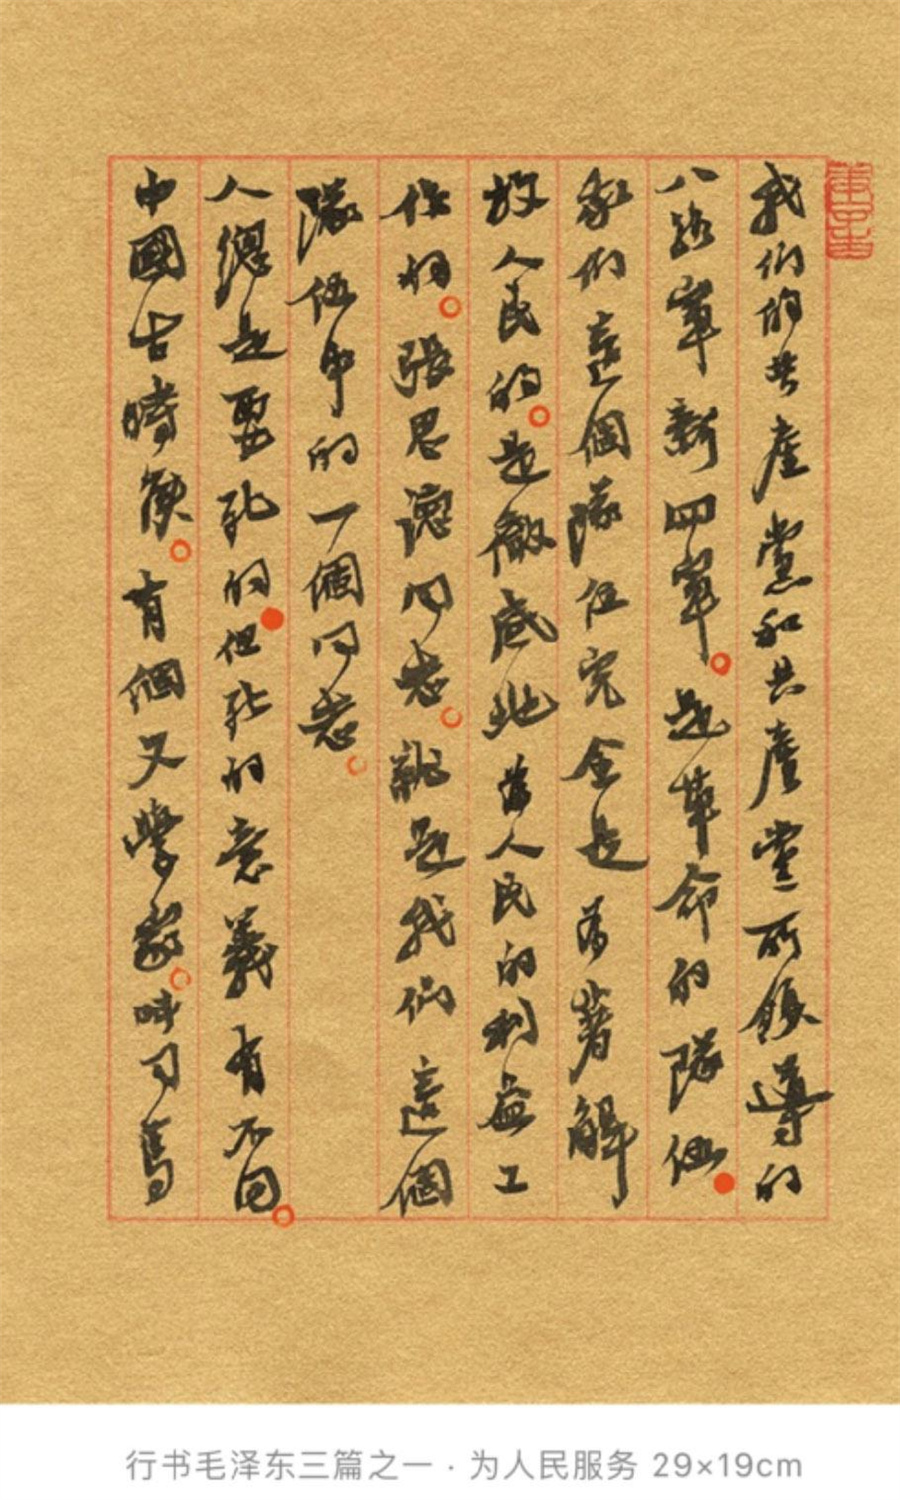 我们的共產黨和共產党所領導的
八路軍新四軍。是革命的隊伍●
我们這個隊伍完全是为著解
放人民的。是徹底地为人民的利益工
作的。張思德同志。就是我们這個
隊伍中的一個同志。
人總是要死的●但死的意義有不同。
中國古時候。有個文學家。叫司馬
行书毛泽东三篇之一 · 为人民服务 29×19cm